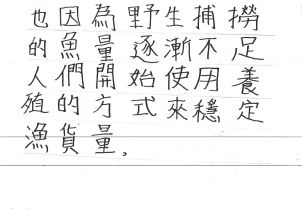 也因為野生捕撈
的魚量逐漸不足
人們開始使用養
殖的方式來穩定
漁貨量。